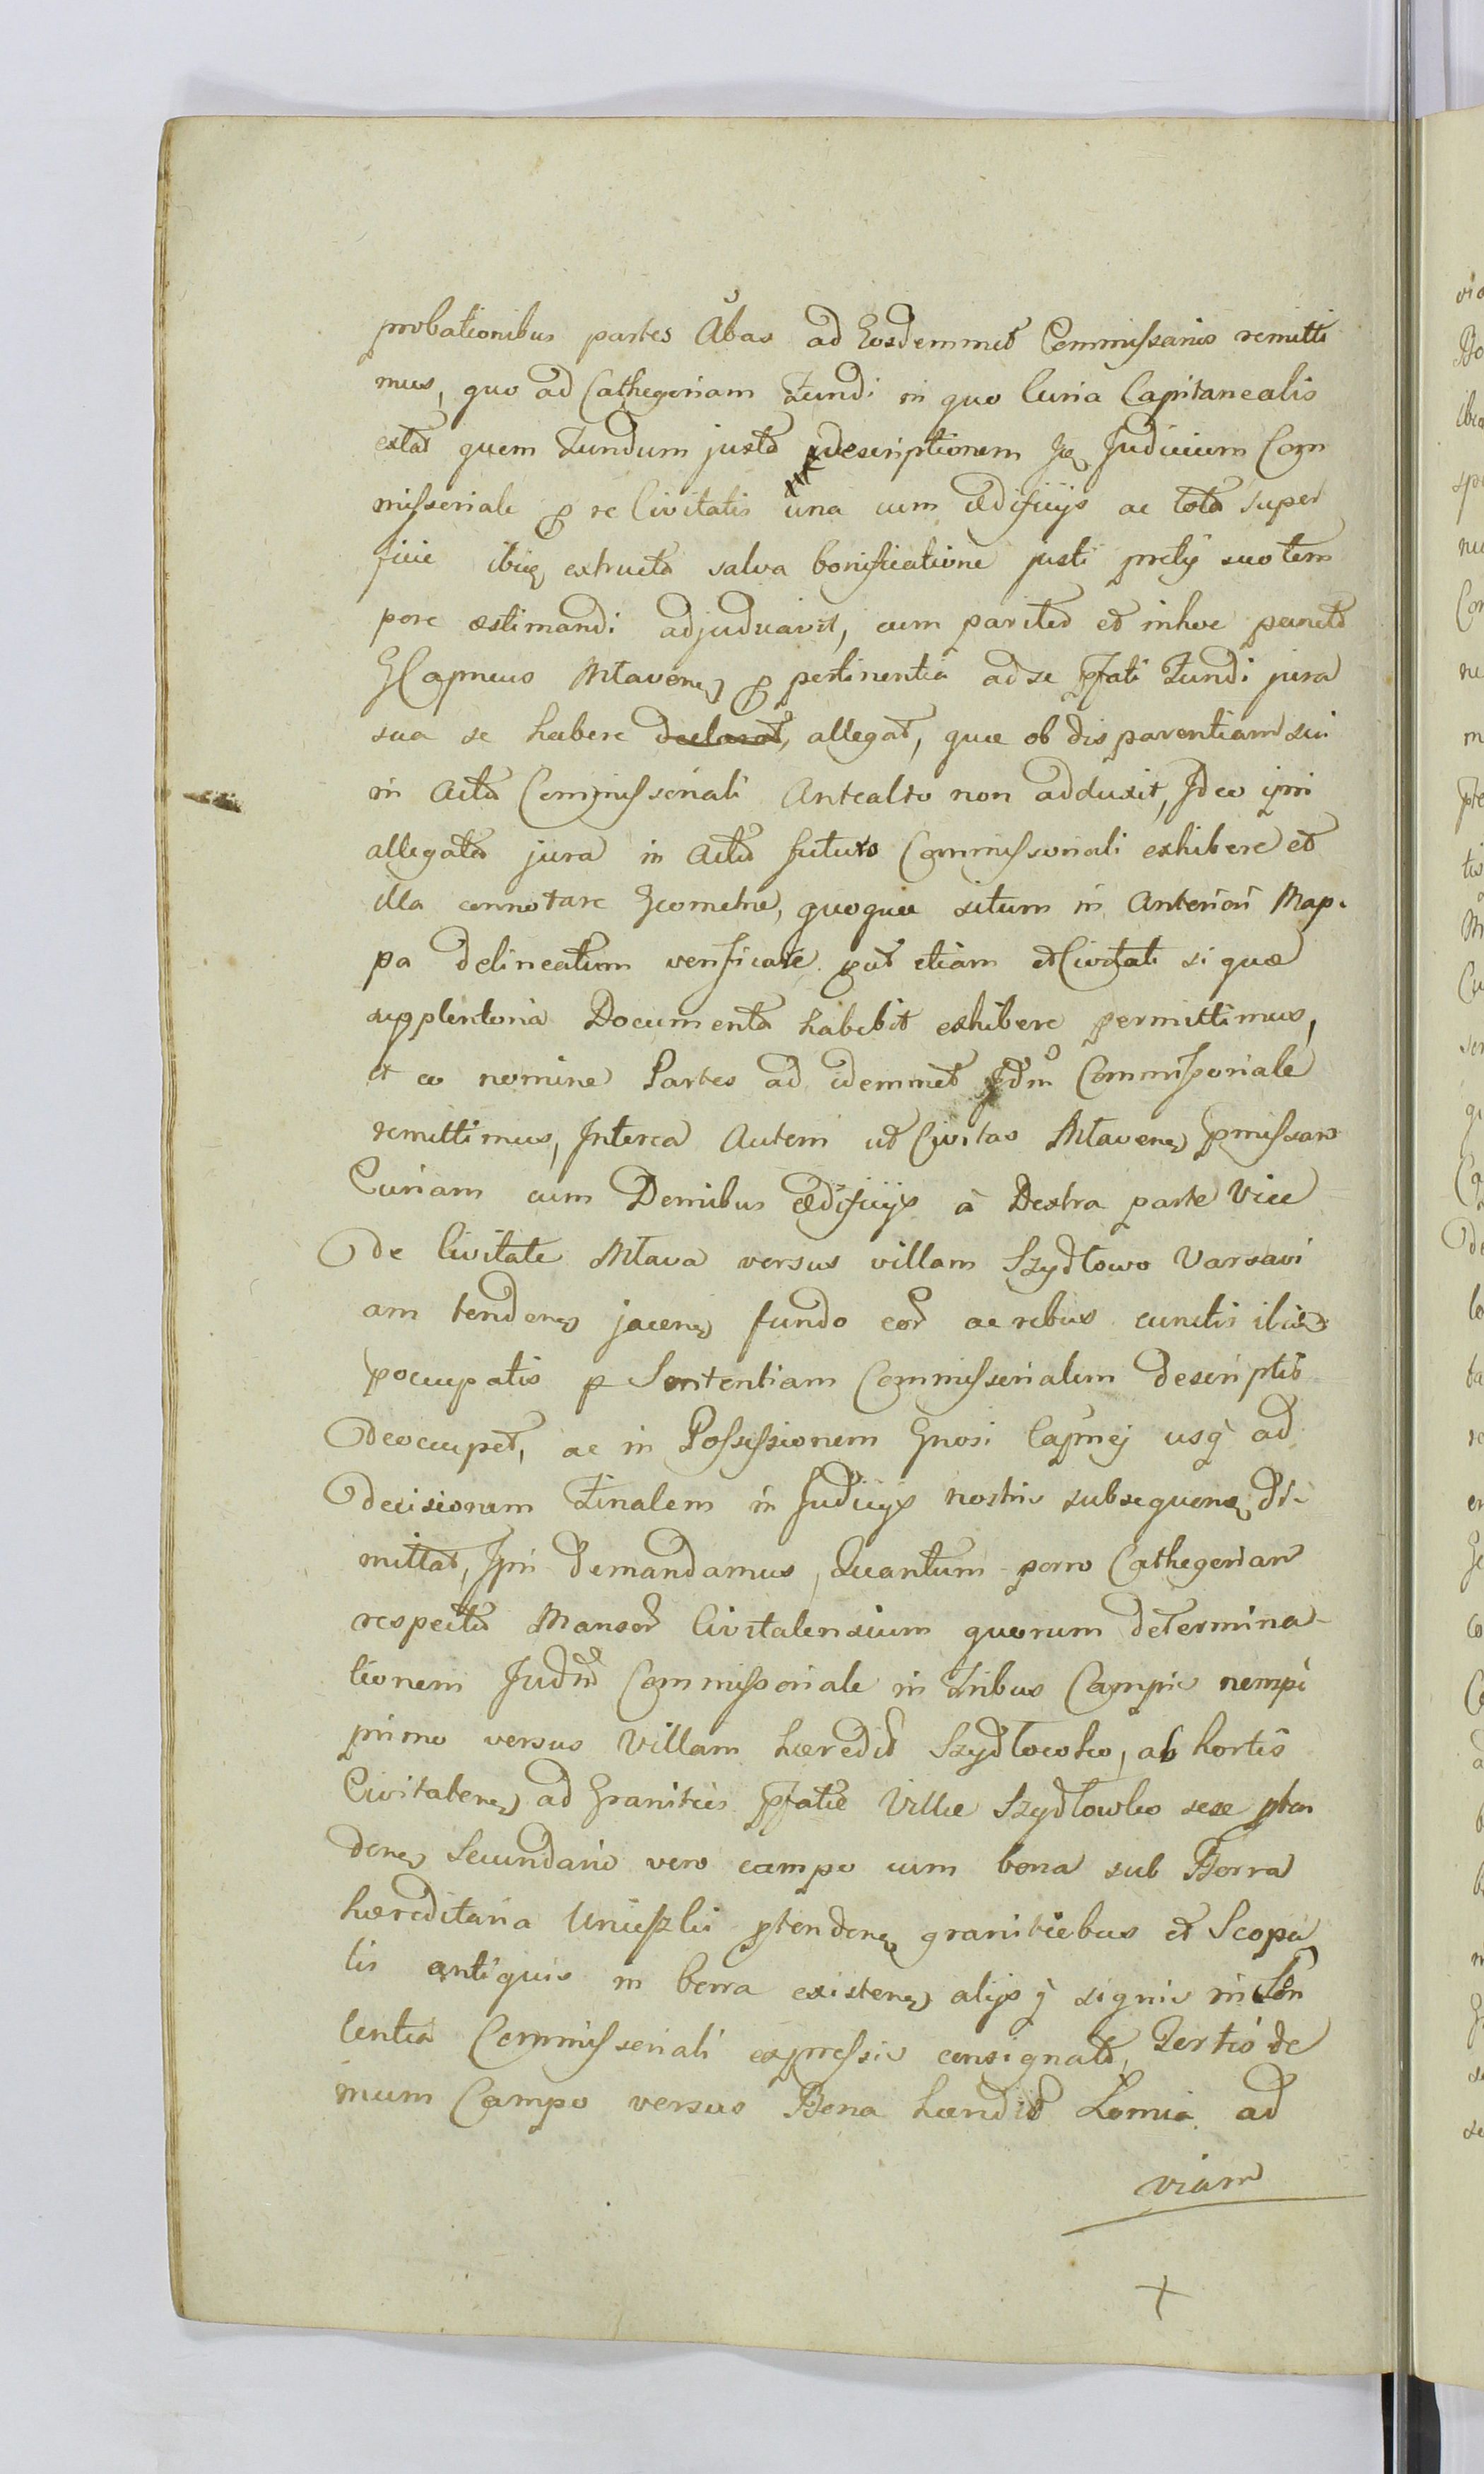 probationibus partes Abas ad Eosdemmet Commissarios remitti
mus, quo ad Cathegoriam Fundi in quo Curia Capitanealis
extat quem Fundum juxta descriptionem Judicium Com
missoriale p re Civitatis una cum ædificijs ac tota super
ficie ibiq extructa salva bonificatione justi pretij suo tem
pore æstimandi adjudicavit, cum pariter et in hoc puncto
GCapneus Mlavens p pertinentia ad se pfati Fundi jura
sua se habere declarat, allegat, quæ ob disparentiam sui
in Actu Commissoriali Anteacto non adduxit, Ideo ipsi
allegata jura in Actu futuro Commissoriali exhibere et
illa connotare Geometræ, quoque situm in Anteriori Map-
pa delineatum verificare put etiam et Civitati si quæ
suppletoria Documenta habebit exhibere permittimus,
et eo nomine Partes ad idemmet Jdm Commissoriale
remittimus, Interea Autem ut Civitas Mlavens pmissam
Curiam cum Domibus ædificijs à Dextra parte Viæ
De Civitate Mlava versus villam Szydłowo Varsavi
am tendens jacens fundo eor ac rebus cunctis ibid
poccupatis p Sententiam Commissorialem descriptis
deoccupet, ac in Possessionem Gnosi Capnej usq ad
Decisionem Finalem in Judicijs nostris subsequens di-
mittat, Ipsi demandamus, Quantum porro Cathegoriam
respectu Mansor Civitatensium quorum determina-
tionem Judm Commissoriale in Tribus Campis nempè
primo versus Villam hæredit Szydłowko, ab hortis
Civitatens ad Granities pfatæ Villæ Szydłowko sese pten
dens Secundario vero campo cum bona sub Borra
hæreditaria Uniszki ptendens granitiebus et Scopu
lis antiquis in borra existens alijsq signis in Sen
tentia Commissoriali expressis consignato, Tertio de
mum Campo versus Bona hæredit Łomia ad
viam